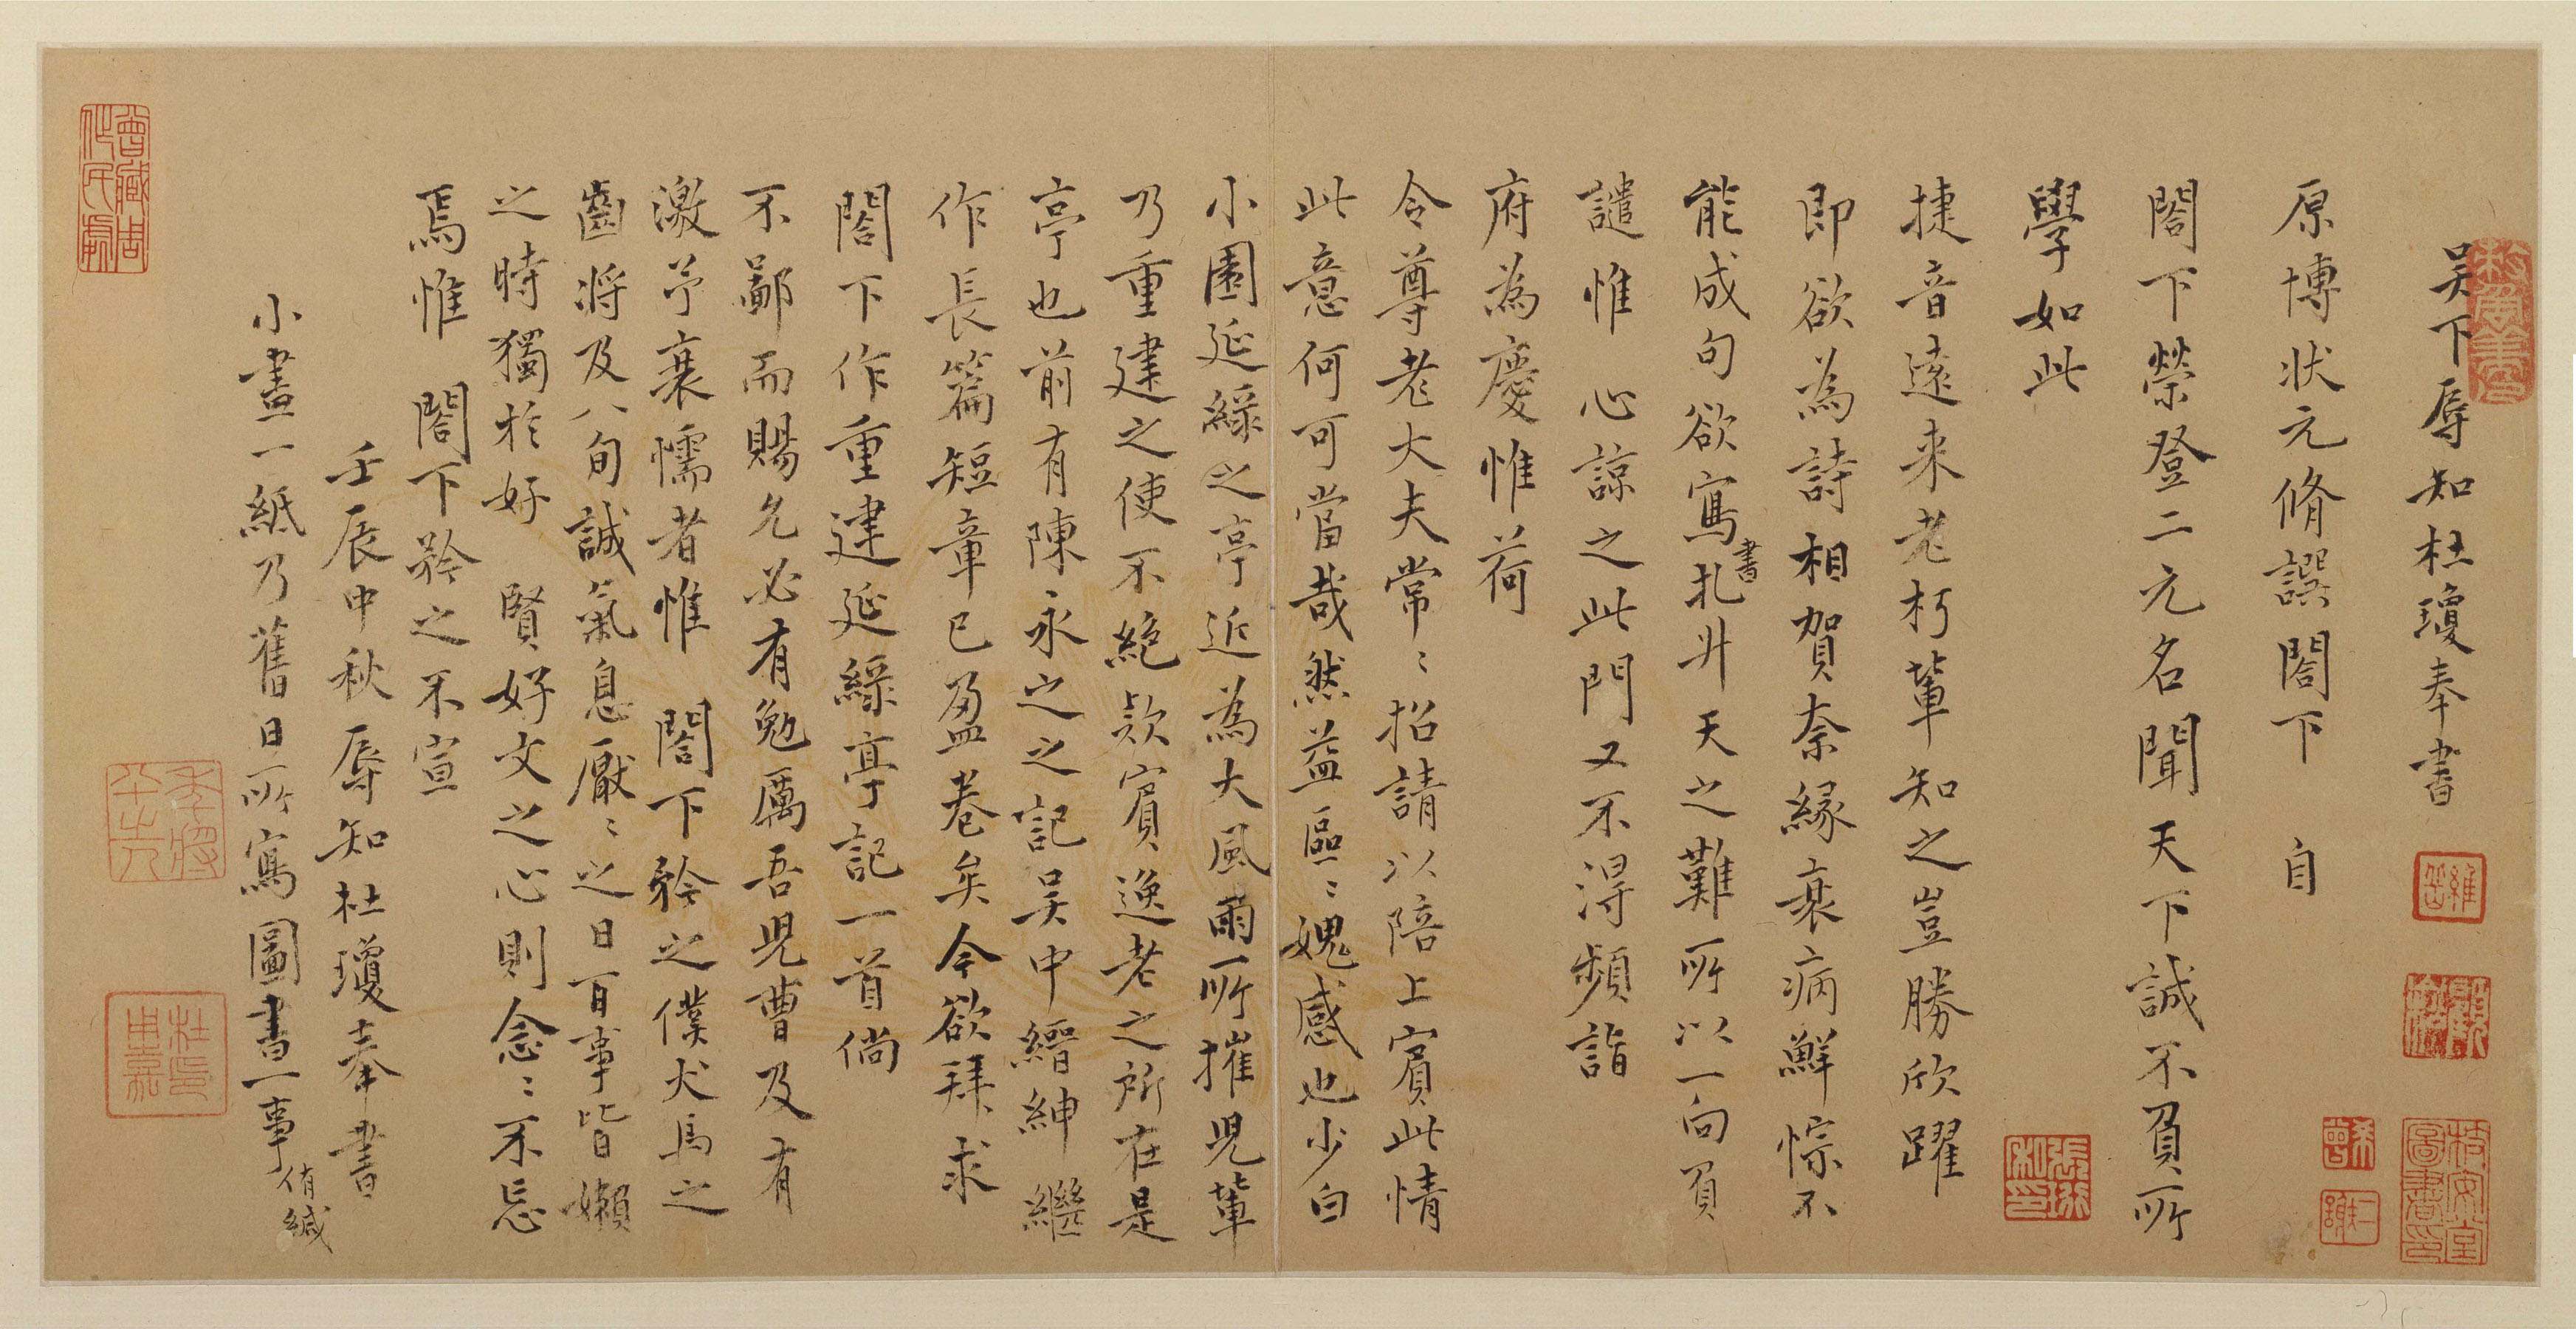 吴下辱知杜瓊奉書
原博狀元脩譔閣下　自
閣下榮登二元名聞天下誠不負所
學如此
捷音遠来老朽輩知之豈勝欣躍
即欲為詩相賀奈緣衰病鮮悰不
能成句欲寫書扎升天之難所以一向負
譴惟心諒之此門又不得頻詣
府為慶惟荷
令尊老大夫常〻招請以陪上賓此情
此意何可當哉然益區〻媿感也少白
小園延綠之亭近為大風雨所摧児輩
乃重建之使不絕欵賓逸老之所在是
亭也前有陳永之之記吴中縉紳繼
作長篇短章已盈卷矣今欲拜求
閣下作重建延綠亭記一首倘
不鄙而賜允必有勉厲吾児曹及有
激予衰懦者惟　閣下矜之僕犬馬之
齒将及八旬誠氣息厭〻之日百事皆嬾
之時獨於好　賢好文之心則念〻不忘
焉惟　閣下矜之不宣
壬辰中秋辱知杜瓊奉書
小畫一紙乃舊日所寫圖書一事侑緘
曾藏周作民處